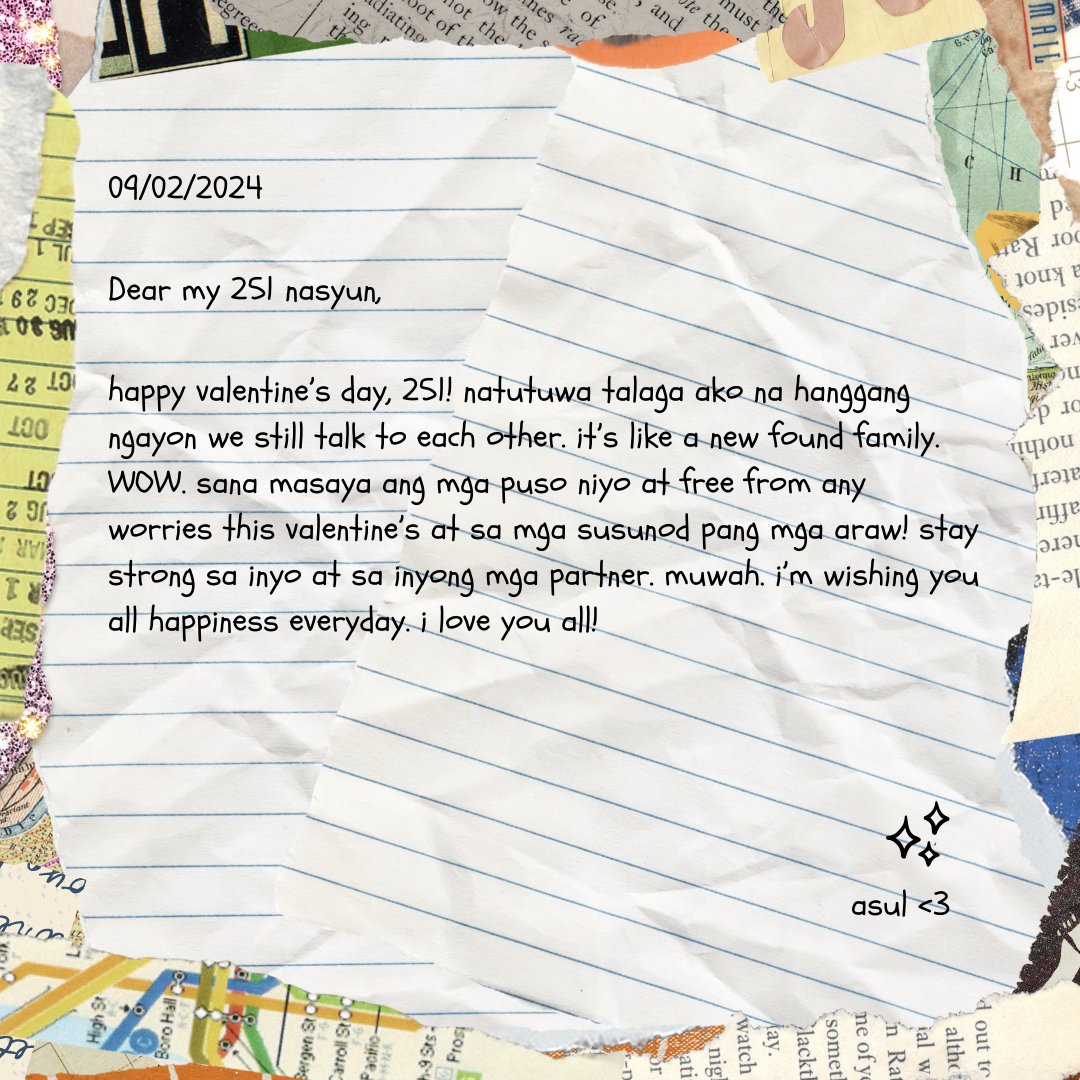 09/02/2024
Dear my 2S1 nasyun,
happy valentine's day, 2S1! natutuwa talaga ako na hanggang
ngayon we still talk to each other. it's like a new found family.
WOW. sana masaya ang mga puso niyo at free from any
worries this valentine's at sa mga susunod pang mga araw! stay
strong sa inyo at sa inyong mga partner. muwah. i'm wishing you
all happiness everyday. i love you all!
asul <3